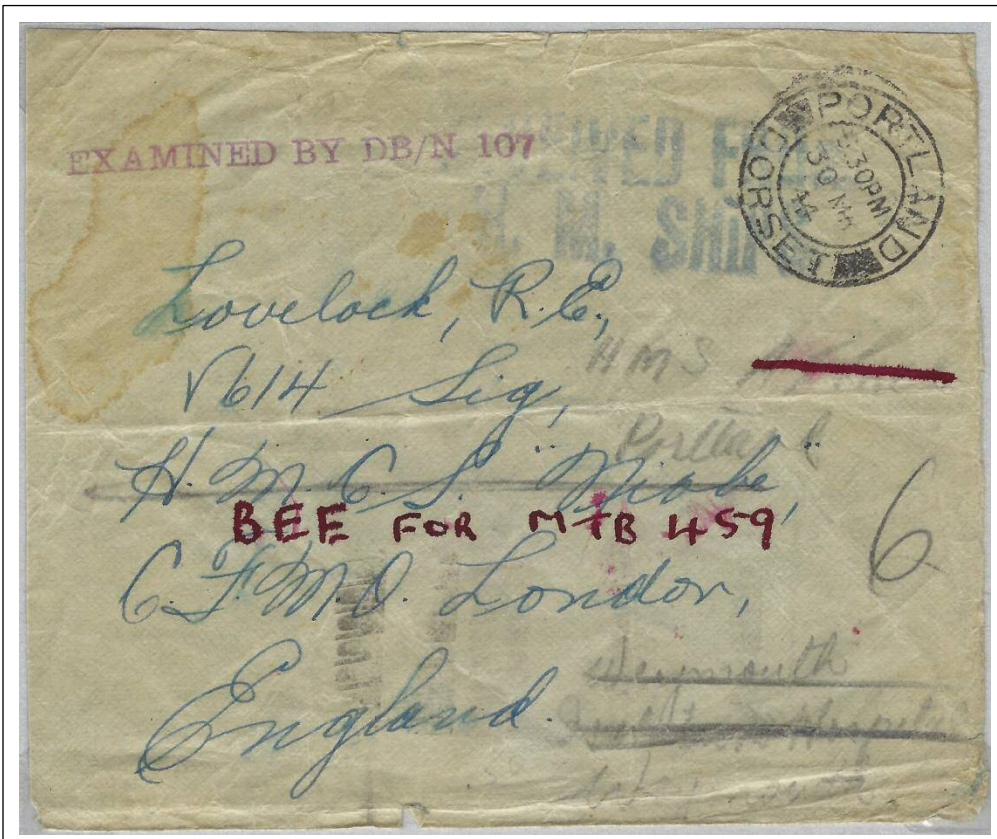 EXAMINED BY DB/N 107
RECEIVED FROM
H. M. SHIPS
PORTLAND
DORSET
5.30PM
30 MR
44
Lovelock, R.E.,
V614 Sig,
HMS
Portland
H.M.C.S. "Niobe",
BEE FOR MTB 459
6
C.F.M.O. London,
England.
Weymouth